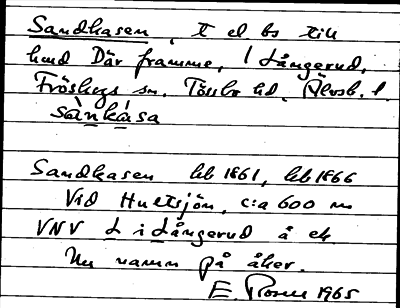 Sandkasen, t el bs till
hmd Där framme, l Långerud,
Fröskogs sn. Tössbo hd. Älvsb. l.
sànkása
Sandkasen hb 1861, hb 1866
Vid Hultsjön, c:a 600 m
VNV L i Långerud å ek
Nu namn på åker.
E Rosen 1965